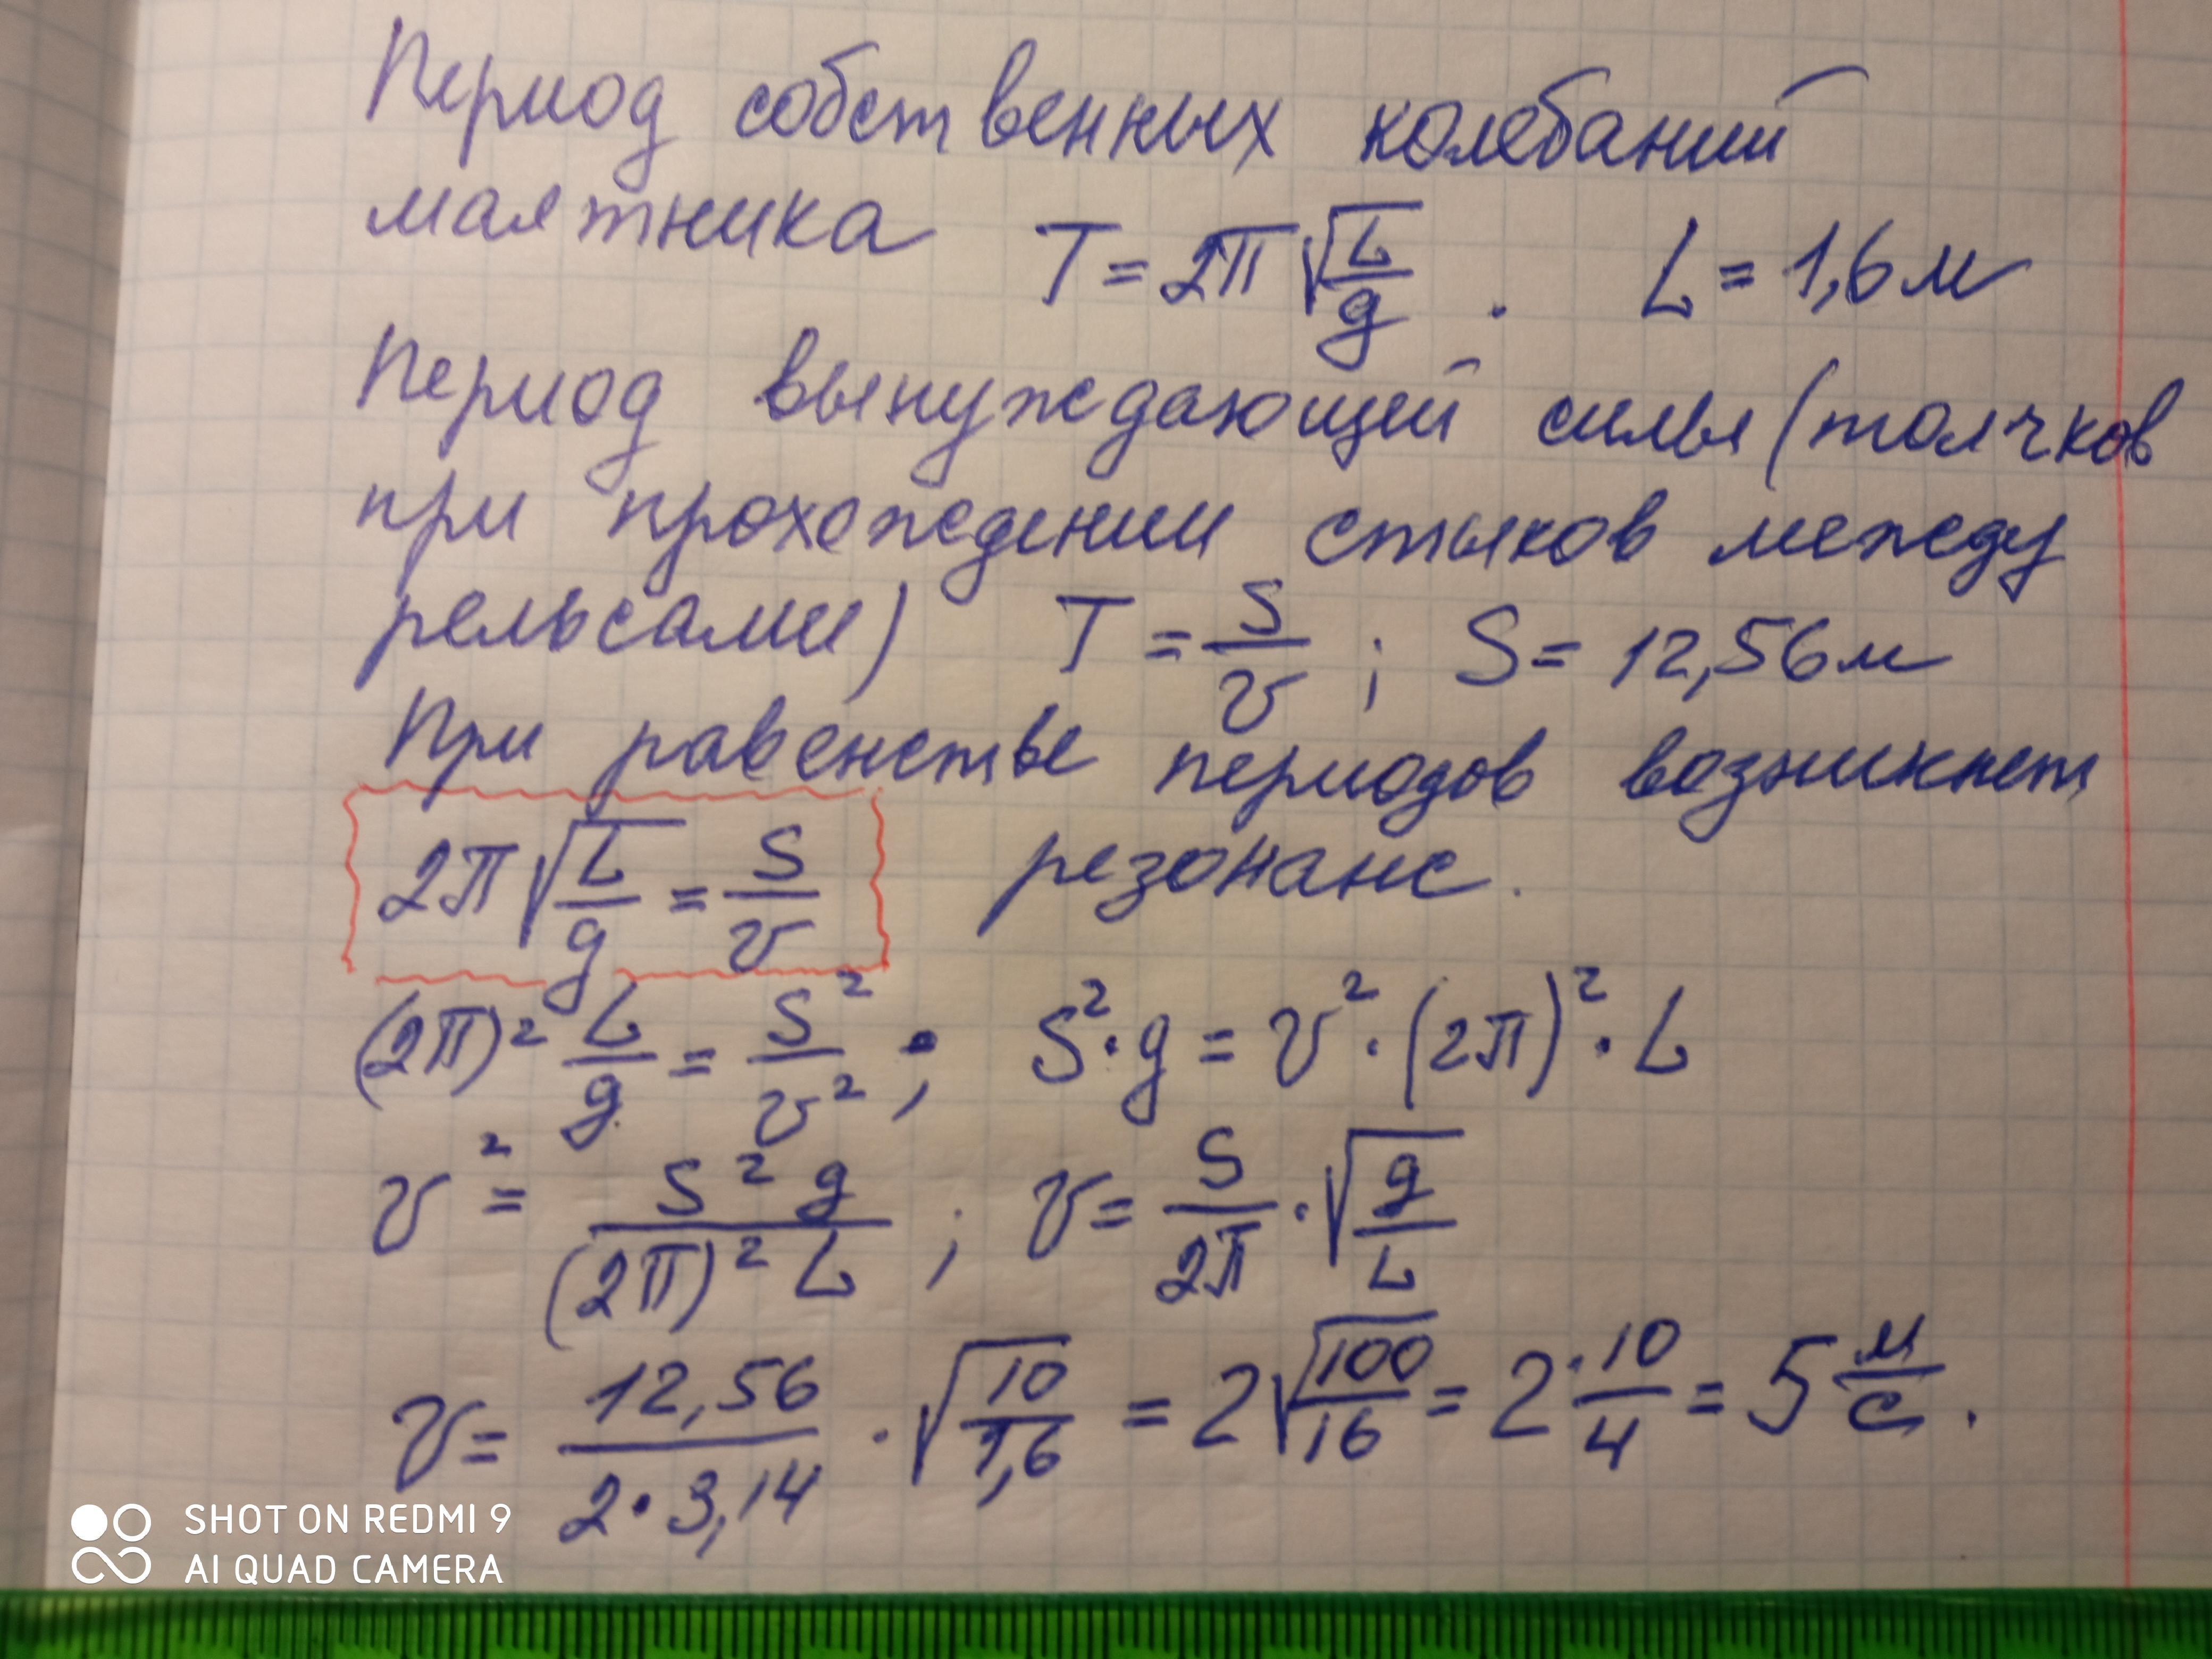 Период собственных колебаний
маятника T = 2π√(L/g) . L = 1,6 м
Период вынуждающей силы (толчков
при прохождении стыков между
рельсами) T = S/v ; S = 12,56 м
При равенстве периодов возникнет
2π√(L/g) = S/v резонанс.
(2π)² L/g = S²/v² ; S²·g = v²·(2π)²·L
v² = S²g/((2π)²L) ; v = S/(2π)·√(g/L)
v = 12,56/(2·3,14)·√(10/1,6) = 2√(100/16) = 2·10/4 = 5 м/с.
SHOT ON REDMI 9
AI QUAD CAMERA